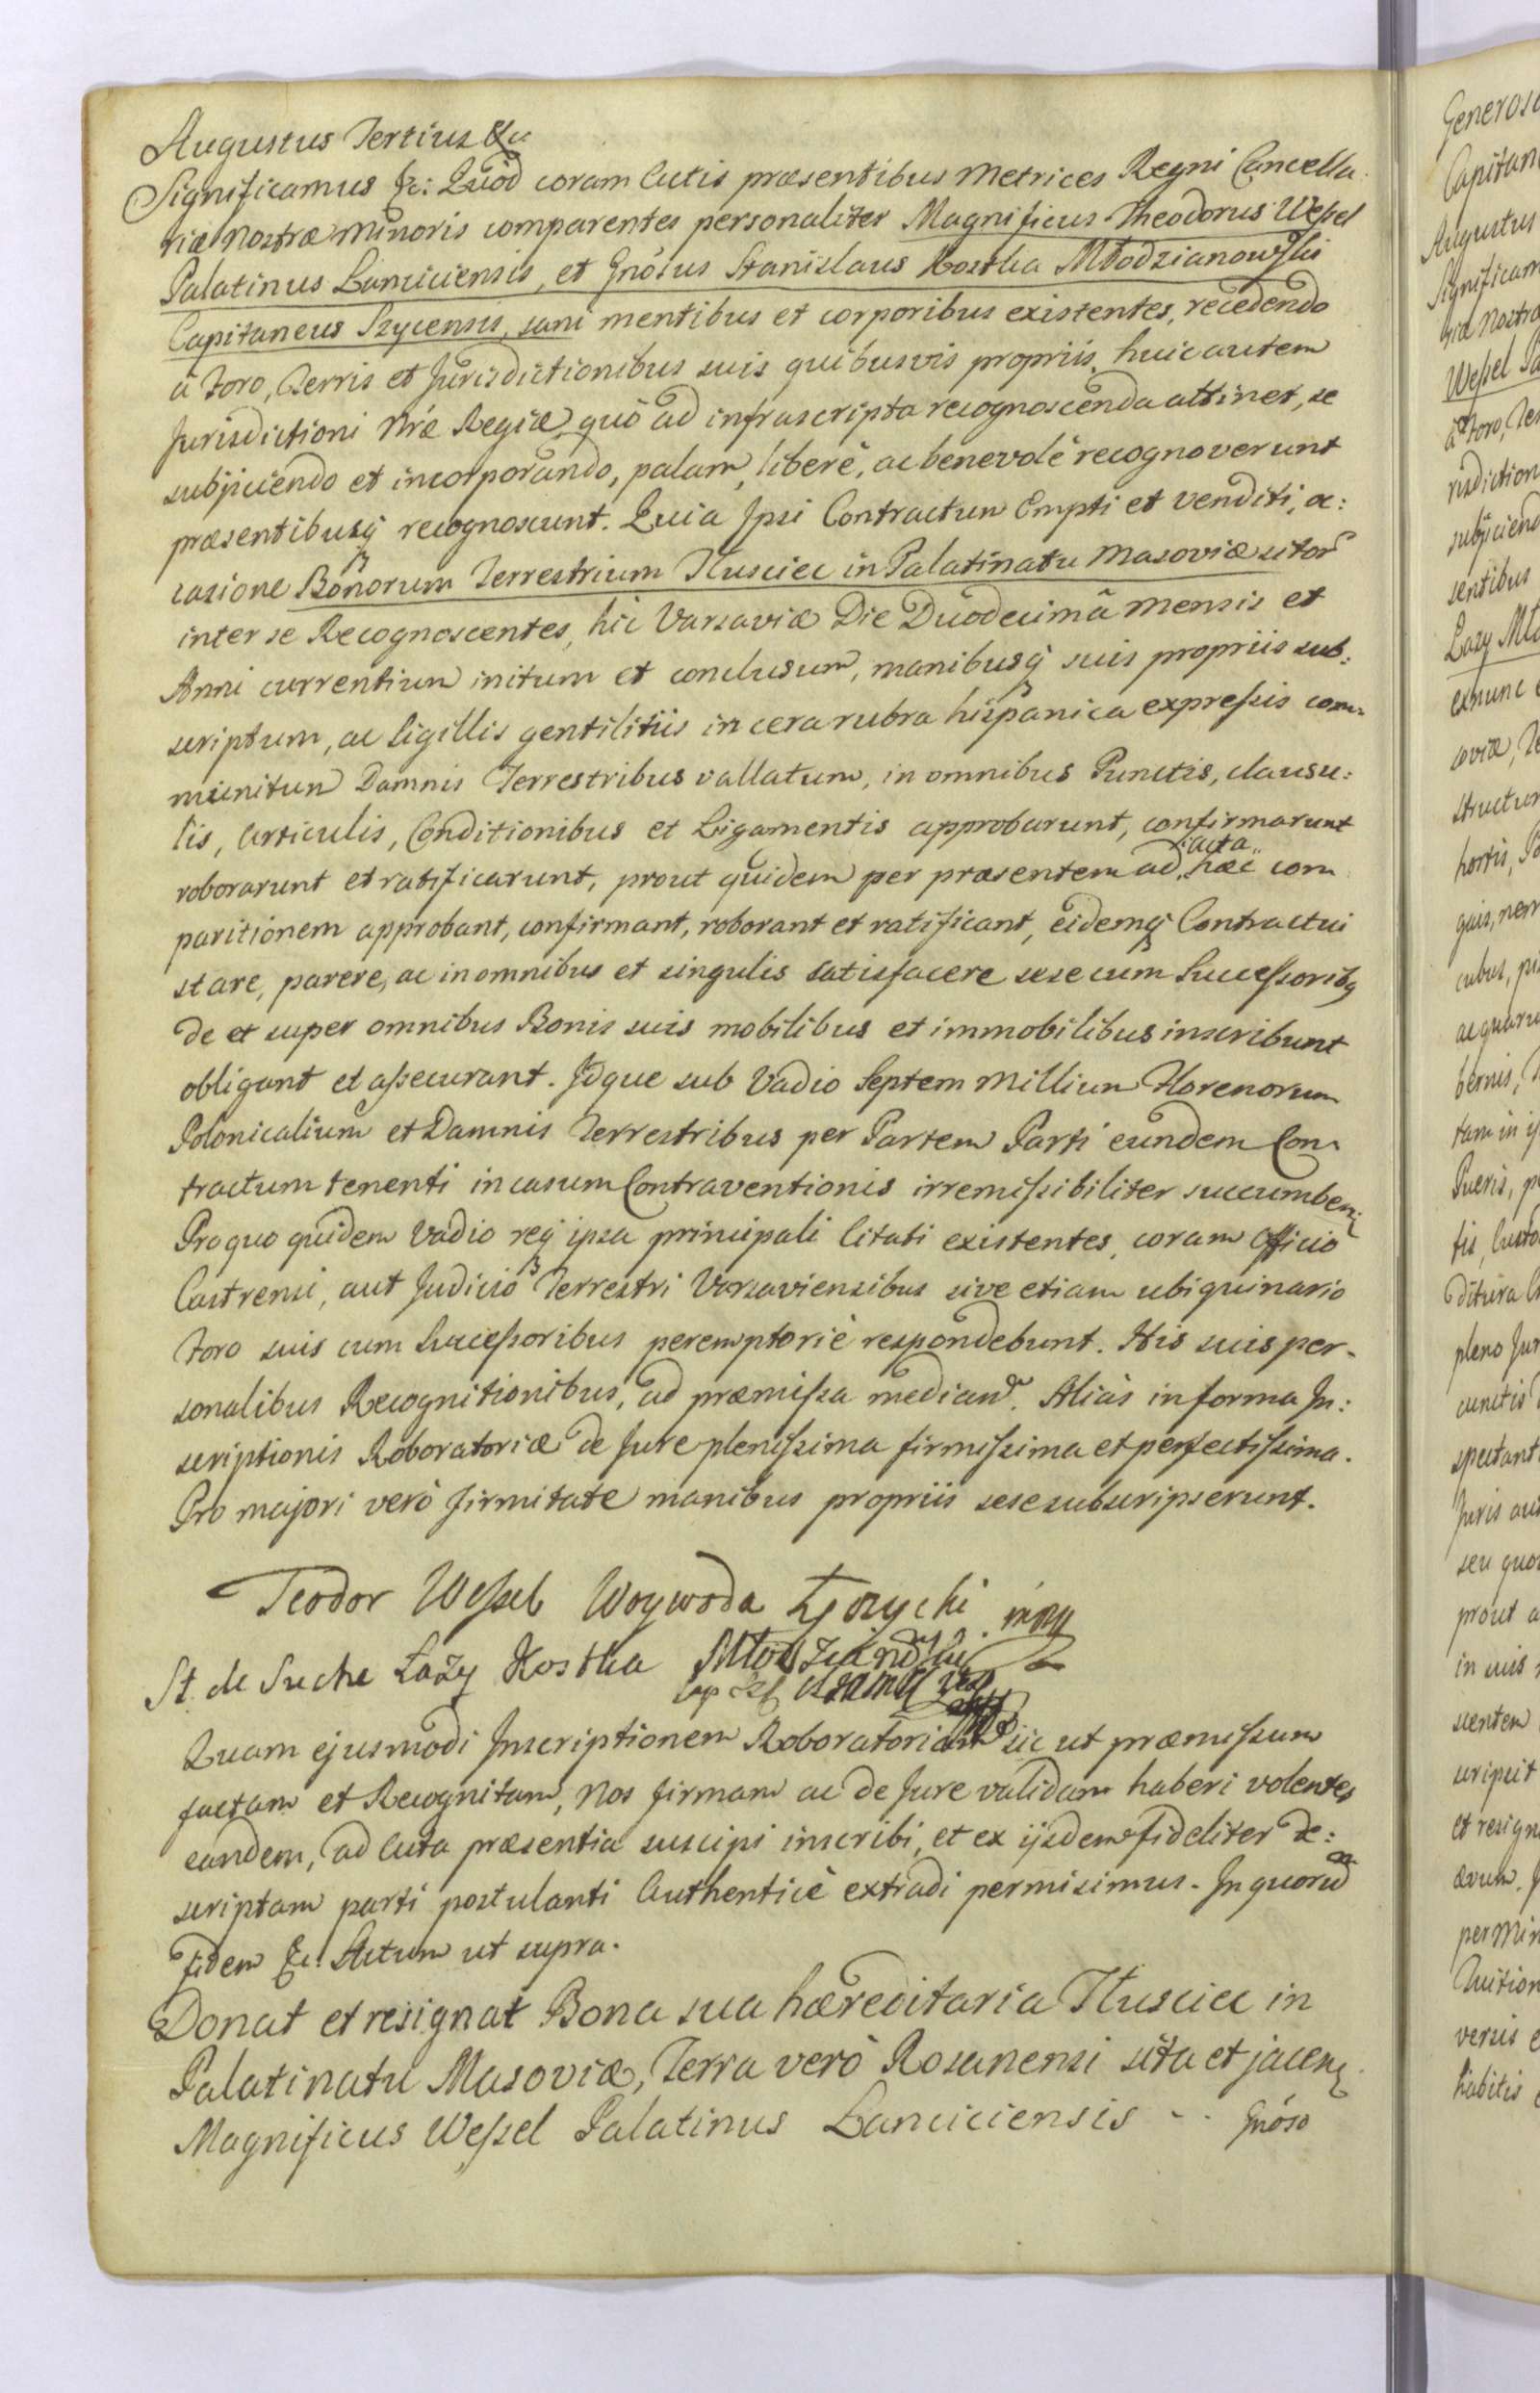 Augustus Tertius &c
Significamus &c: Quod coram Actis præsentibus Metrices Regni Cancella
riæ Nostræ Minoris comparentes personaliter Magnificus Theodorus Weſsel
Palatinus Lanciciensis, et Gnosus Stanislaus Kostka Młodzianowſki
Capitaneus Szycensis, sani mentibus et corporibus existentes, recedendo
à Foro, Terris et Jurisdictionibus suis quibusvis propriis, huic autem
Jurisdictioni Nræ Regiæ quò ad infrascripta recognoscenda attinet, se
subjiciendo et incorporando, palam, liberè, ac benevolè recognoverunt
præsentibusq recognoscunt. Quia Ipsi Contractum Empti et Venditi, oc:
casione Bonorum Terrestrium Tłusciec in Palatinatu Masoviæ sitor
inter se Recognoscentes, hic Varsaviæ Die Duodecimâ Mensis et
Anni currentium initum et conclusum, manibusq suis propriis sub:
scriptum, ac Sigillis gentilitiis in cera rubra hispanica expreſsis com:
munitum Damnis Terrestribus vallatum, in omnibus Punctis, clausu:
lis, Articulis, Conditionibus et Ligamentis approbarunt, confirmarunt
roborarunt et ratificarunt, prout quidem per præsentem ad acta hæc com
paritionem approbant, confirmant, roborant et ratificant, eidemq Contractui
stare, parere, ac in omnibus et singulis satisfacere sese cum Succeſsoribq
de et super omnibus Bonis suis mobilibus et immobilibus inscribunt
obligant et aſsecurant. Idque sub Vadio Septem Millium Florenorum
Polonicalium et Damnis Terrestribus per Partem Parti eundem Con
tractum tenenti in casum Contraventionis irremiſsibiliter succumben:
Pro quo quidem Vadio req ipsa principali Citati existentes, coram Officio
Castrensi, aut Judicio Terrestri Varsaviensibus sive etiam ubiquinario
Foro suis cum Succeſsoribus peremptoriè respondebunt. His suis per-
sonalibus Recognitionibus, ad præmiſsa median. Aliàs in forma In:
scriptionis Roboratoriæ de Jure pleniſsima firmiſsima et perfectiſsima.
Pro majori verò firmitate manibus propriis sese subscripserunt.
Teodor Weſsel Woywoda Łęczycki mpp
St. de Suche Łazy Kostka Młodzianowſki
Quam ejusmodi Inscriptionem Roboratoriam sic ut præmiſsum
factam et Recognitam, Nos firmam ac de Jure validam haberi volentes
eandem, ad Acta præsentia suscipi inscribi, et ex ijsdem fideliter de:
scriptam parti postulanti Authenticè extradi permisimus. In quorũ
Fidem &c. Actum ut supra.
Donat et resignat Bona sua hæreditaria Tłusciec in
Palatinatu Masoviæ, Terra verò Rosanensi sita et jacen
Magnificus Weſsel Palatinus Lanciciensis - - Gnoso